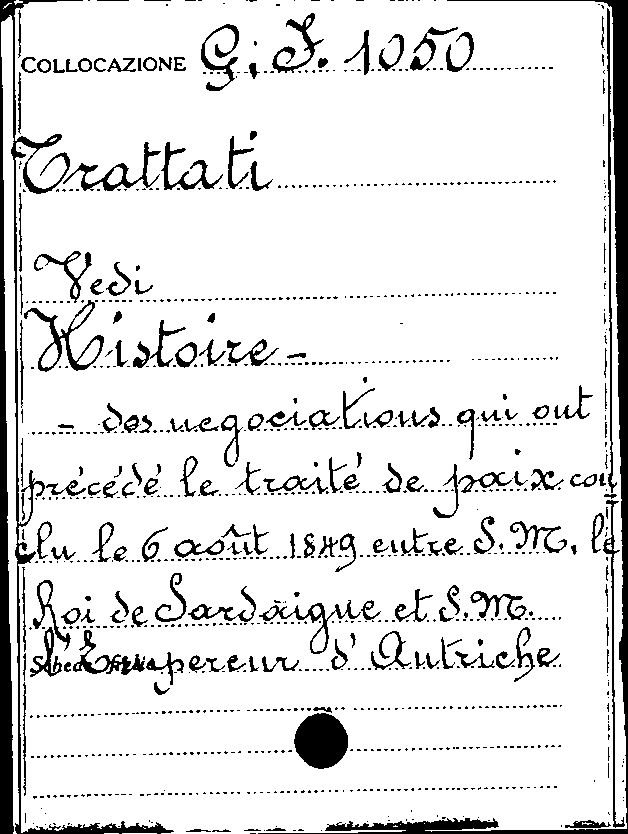 COLLOCAZIONE G. J. 1050
Trattati
Vedi
Histoire -
- des negociations qui ont
précédé le traité de paix con=
clu le 6 août 1849 entre S. M. le
Roi de Sardaigne et S. M.
L'Empereur d'Autriche